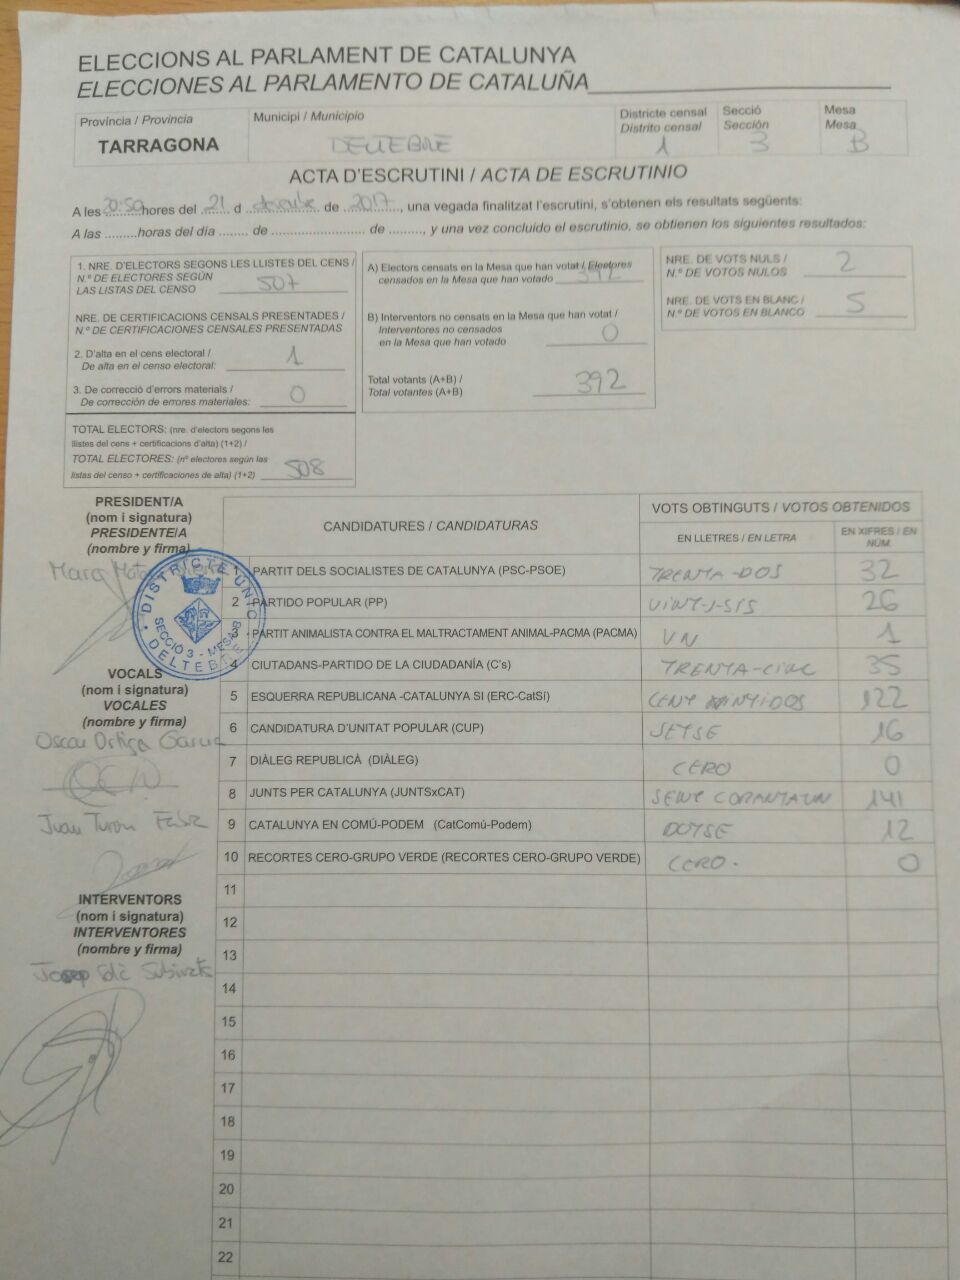 ELECCIONS AL PARLAMENT DE CATALUNYA
ELECCIONES AL PARLAMENTO DE CATALUÑA
Província / Provincia
TARRAGONA
Municipi / Municipio
DELTEBRE
Districte censal
Distrito censal
1
Secció
Sección
3
Mesa
Mesa
B
ACTA D'ESCRUTINI / ACTA DE ESCRUTINIO
A les 20:50 hores del 21 d desembre de 2017, una vegada finalitzat l'escrutini, s'obtenen els resultats següents:
A las .........horas del día ........ de ........................ de ........., y una vez concluido el escrutinio, se obtienen los siguientes resultados:
1. NRE. D'ELECTORS SEGONS LES LLISTES DEL CENS /
N.º DE ELECTORES SEGÚN
LAS LISTAS DEL CENSO 507
NRE. DE CERTIFICACIONS CENSALS PRESENTADES /
N.º DE CERTIFICACIONES CENSALES PRESENTADAS
2. D'alta en el cens electoral /
De alta en el censo electoral: 1
3. De correcció d'errors materials /
De corrección de errores materiales: 0
TOTAL ELECTORS: (nre. d'electors segons les
llistes del cens + certificacions d'alta) (1+2) /
TOTAL ELECTORES: (nº electores según las
listas del censo + certificaciones de alta) (1+2) 508
A) Electors censats en la Mesa que han votat / Electores
censados en la Mesa que han votado 392
B) Interventors no censats en la Mesa que han votat /
Interventores no censados
en la Mesa que han votado 0
Total votants (A+B) /
Total votantes (A+B) 392
NRE. DE VOTS NULS /
N.º DE VOTOS NULOS 2
NRE. DE VOTS EN BLANC /
N.º DE VOTOS EN BLANCO 5
PRESIDENT/A
(nom i signatura)
PRESIDENTE/A
(nombre y firma)
DISTRICTE ÚNIC
SECCIÓ 3 - MESA B
DELTEBRE
VOCALS
(nom i signatura)
VOCALES
(nombre y firma)
Oscar Ortiga Garcia
Juan Turon
INTERVENTORS
(nom i signatura)
INTERVENTORES
(nombre y firma)
Josep Solé Subirats
CANDIDATURES / CANDIDATURAS
VOTS OBTINGUTS / VOTOS OBTENIDOS
EN LLETRES / EN LETRA
EN XIFRES / EN NÚM.
1 PARTIT DELS SOCIALISTES DE CATALUNYA (PSC-PSOE) TRENTA-DOS 32
2 PARTIDO POPULAR (PP) VINT-I-SIS 26
3 PARTIT ANIMALISTA CONTRA EL MALTRACTAMENT ANIMAL-PACMA (PACMA) UN 1
4 CIUTADANS-PARTIDO DE LA CIUDADANÍA (C's) TRENTA-CINC 35
5 ESQUERRA REPUBLICANA -CATALUNYA SI (ERC-CatSí) CENT VINTIDOS 122
6 CANDIDATURA D'UNITAT POPULAR (CUP) SETSE 16
7 DIÀLEG REPUBLICÀ (DIÀLEG) CERO 0
8 JUNTS PER CATALUNYA (JUNTSxCAT) SENT CORANTAUN 141
9 CATALUNYA EN COMÚ-PODEM (CatComú-Podem) DOTSE 12
10 RECORTES CERO-GRUPO VERDE (RECORTES CERO-GRUPO VERDE) CERO. 0
11
12
13
14
15
16
17
18
19
20
21
22